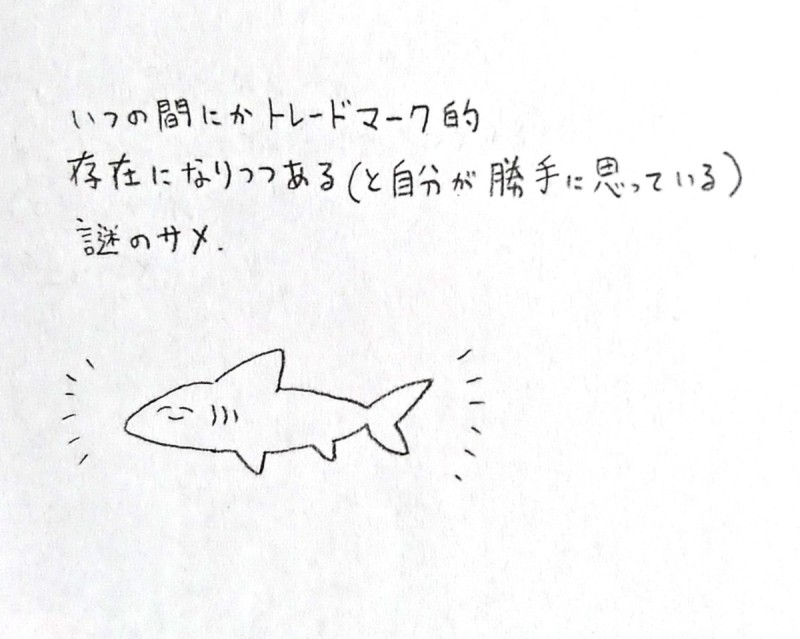 いつの間にかトレードマーク的
存在になりつつある(と自分が勝手に思っている)
謎のサメ.